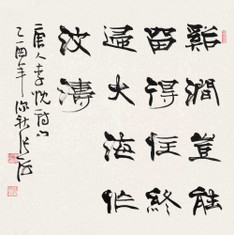 谿澗豈能
留得住終
歸大海作
波濤
唐人李忱詩
乙酉年深秋